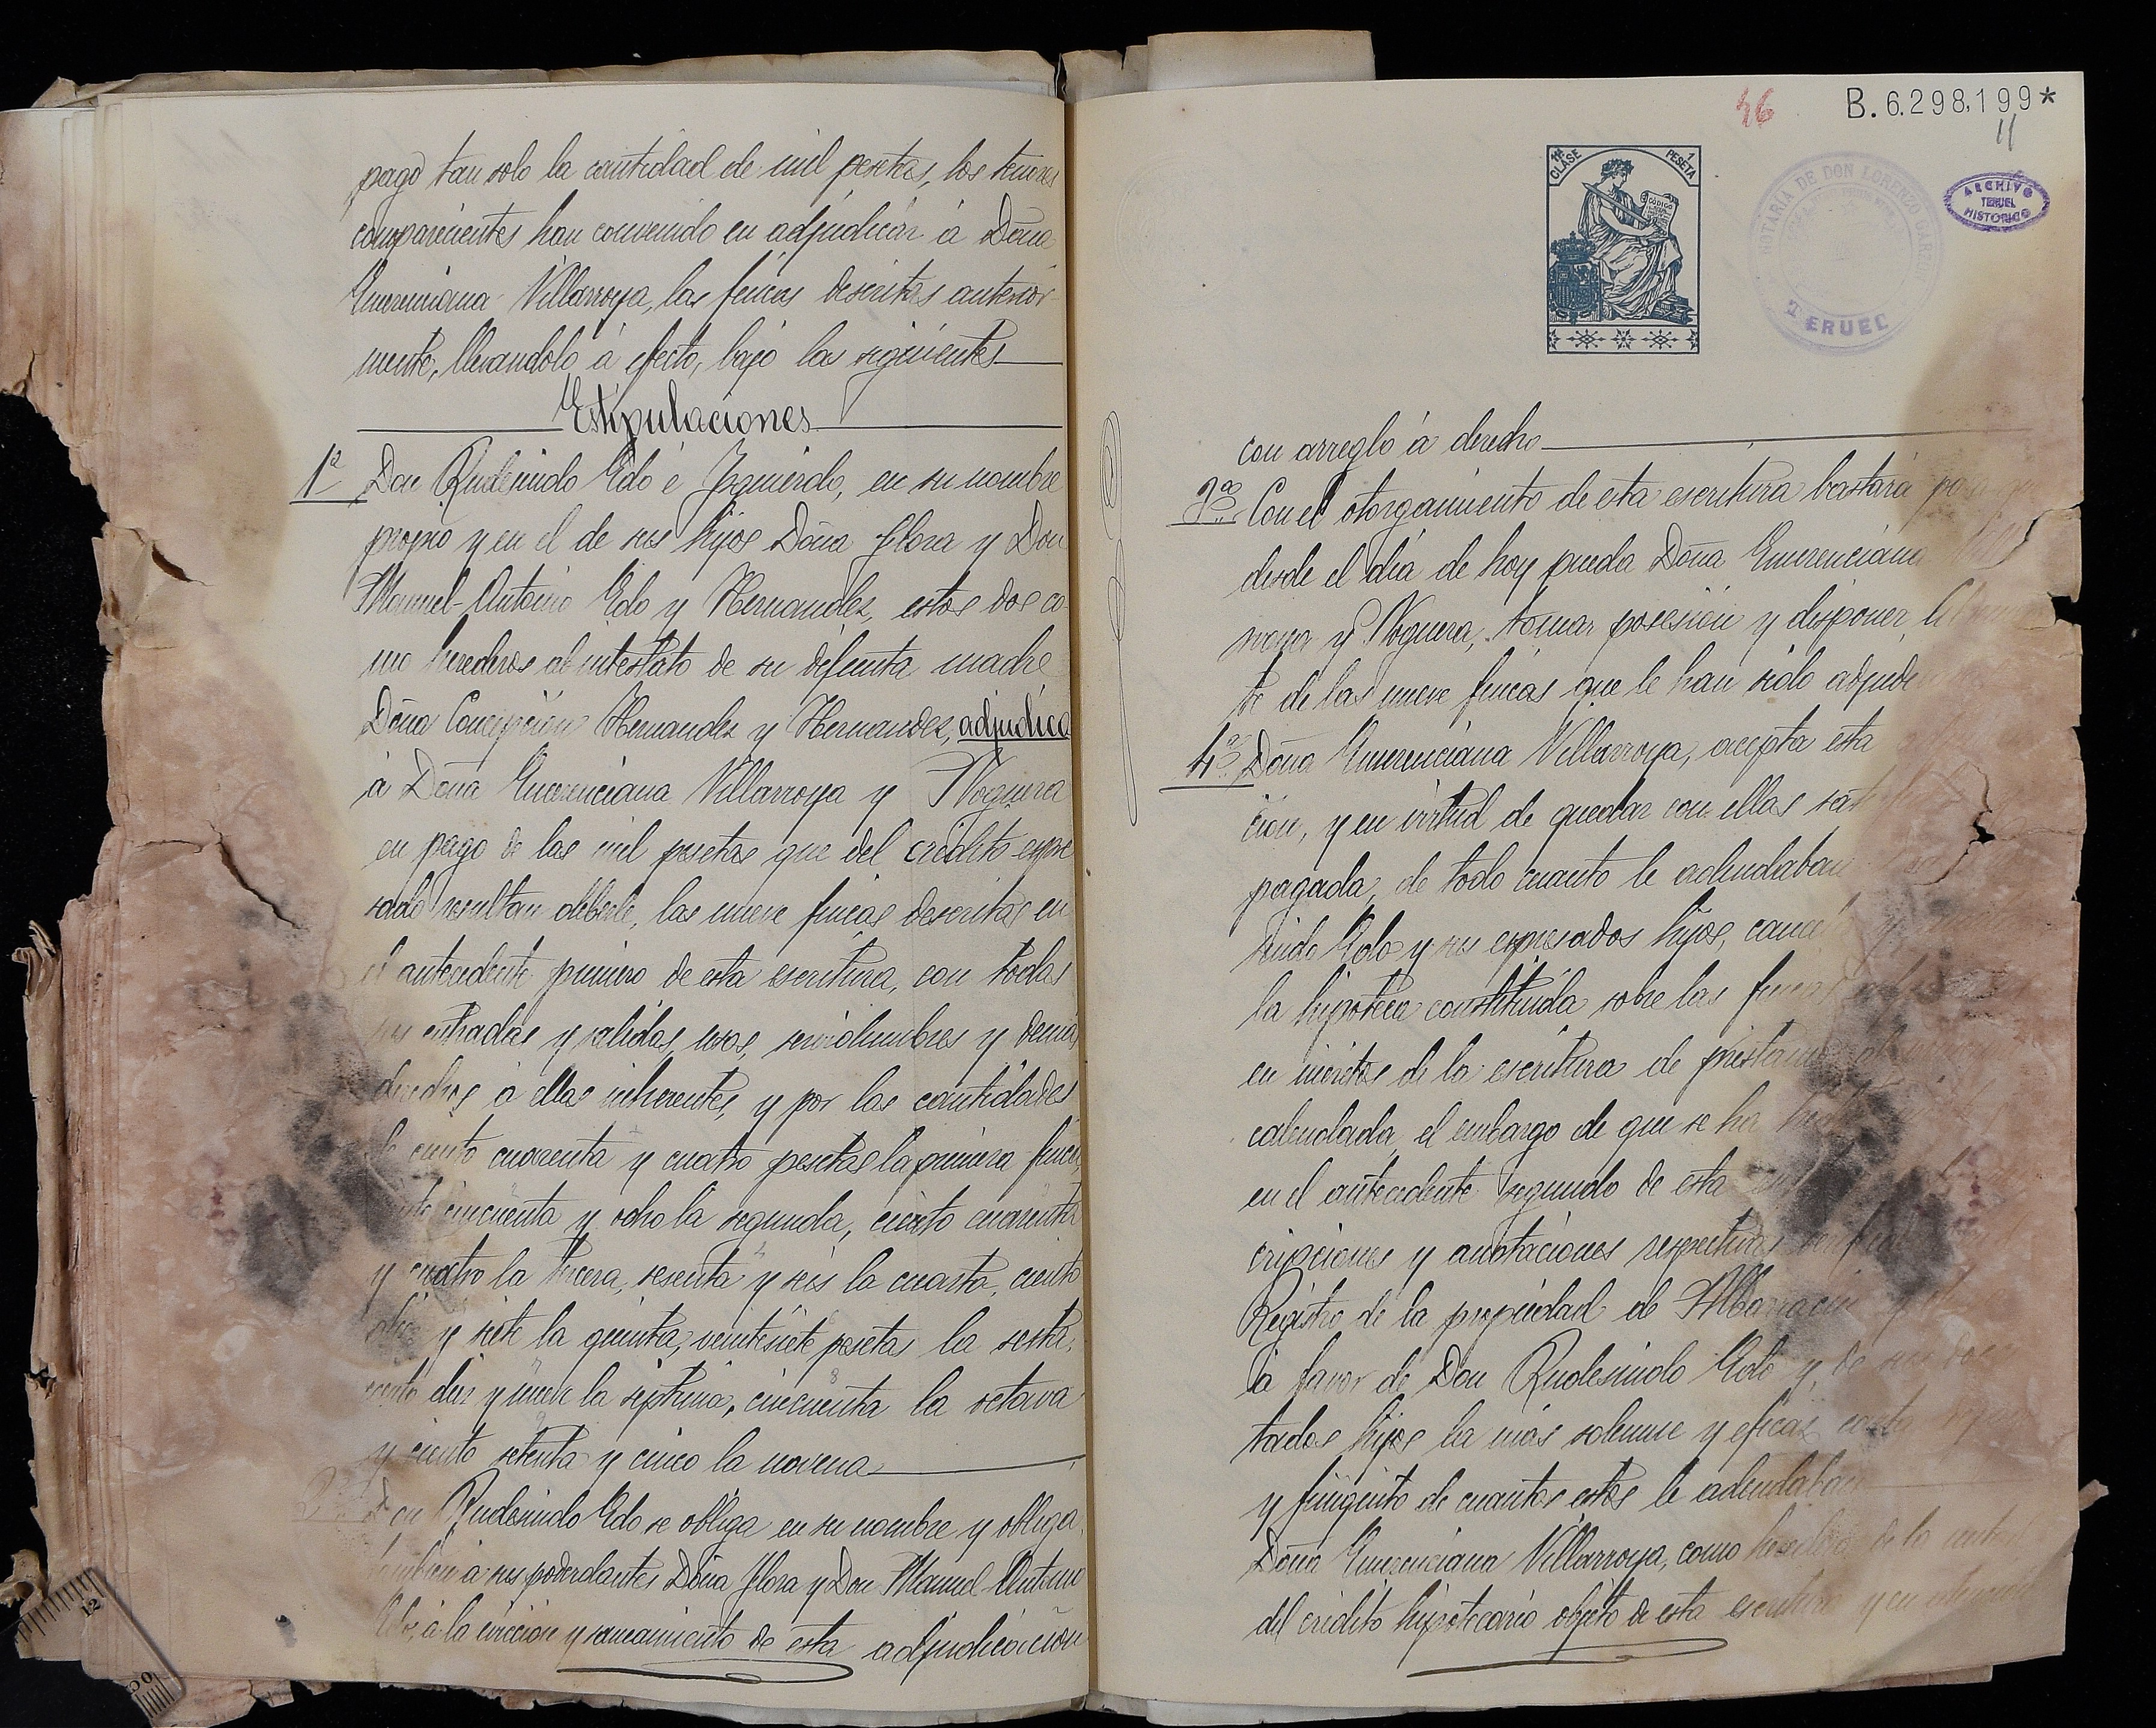 pago tan solo la cantidad de mil pesetas, los señores
comparecientes han convenido en adjudicar á Doña
Emerenciana Villarroya, las fincas descritas anterior-
mente, llevandolo á efecto, bajo las siguientes
Estipulaciones
1ª Don Rudesindo Edo é Izquierdo, en su nombre
propio y en el de sus hijos Doña Flora y Don
Manuel-Antonio Edo y Hernandez, estos dos co-
mo herederos abintestato de su difunta madre
Doña Concepción Hernandez y Hernandez, adjudica
á Doña Emerenciana Villarroya y Noguera
en pago de las mil pesetas que del crédito expre
sado resultan deberle, las nueve fincas descritas en
el antecedente primero de esta escritura, con todas
sus entradas y salidas, usos, servidumbres y demás
derechos á ellas inherentes, y por las cantidades
de ciento cuarenta y cuatro pesetas la primera finca,
cincuenta y ocho la segunda, ciento cuarenta
y cuatro la tercera, sesenta y seis la cuarta, ciento
diez y siete la quinta, veintisiete pesetas la sesta,
ciento diez y nueve la septima, cincuenta la octava
y ciento setenta y cinco la novena
2ª Don Rudesindo Edo se obliga en su nombre y obliga
tambien á sus poderdantes Doña Flora y Don Manuel-Antonio
Edo, á la evicción y saneamiento de esta adjudicación
46
B.6.298.199*
11ª CLASE
1 PESETA
CÓDIGO
NOTARÍA DE DON LORENZO
TERUEL
ARCHIVO
TERUEL
HISTORICO
con arreglo á derecho
3ª Con el otorgamiento de esta escritura bastará para que
desde el día de hoy pueda Doña Emerenciana
rroya y Noguera, tomar posesión y disponer
te de las nueve fincas que le han sido adjudi
4ª Doña Emerenciana Villarroya, acepta esta
ción, y en virtud de quedar con ellas
pagada, de todo cuanto le adeudaban
sindo Edo y sus expresados hijos, cancela y
la hipoteca constituida sobre las fincas
en méritos de la escritura de préstamo
calendada, el embargo de que se ha hecho
en el antecedente segundo de esta
cripciones y anotaciones respectivas
Registro de la propiedad de Albarracin y
á favor de Don Rudesindo Edo y de sus
tados hijos la más solemne y eficaz carta de pago
y finiquito de cuanto estos le adeudaban
Doña Emerenciana Villarroya, como heredera de la
del crédito hipotecario objeto de esta escritura y en